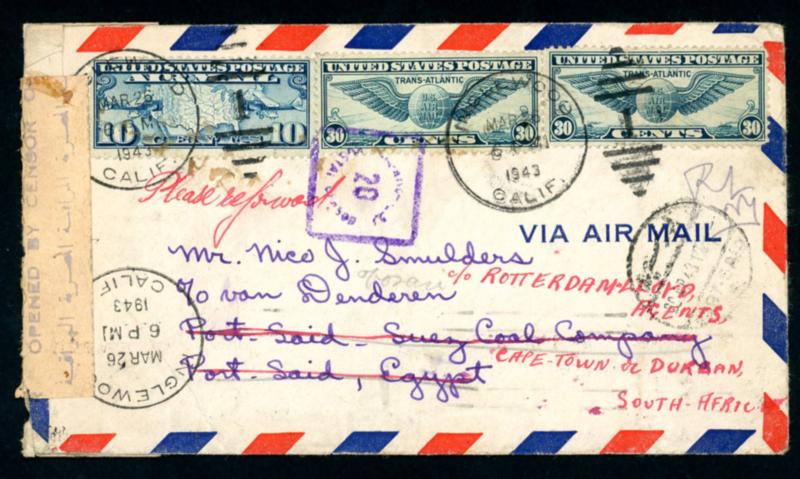 UNITED STATES POSTAGE
AIR MAIL
10 CENTS 10
UNITED STATES POSTAGE
TRANS-ATLANTIC
U.S. AIR MAIL
30 CENTS 30
UNITED STATES POSTAGE
TRANS-ATLANTIC
30 CENTS 30
INGLEWOOD
MAR 26
6 PM
1943
CALIF.
INGLEWOOD
MAR
1943
CALIF.
OPENED BY CENSOR
POSTAL CENSOR
20
Please re-forward
VIA AIR MAIL
Mr. Nico J. Smulders
c/o van Denderen
c/o ROTTERDAM-LLOYD,
AGENTS,
Port-Said-Suez Coal Company
Port-Said, Egypt
CAPE-TOWN or DURBAN,
SOUTH-AFRIC
INGLEWOOD
MAR 26
6 P.M
1943
CALIF